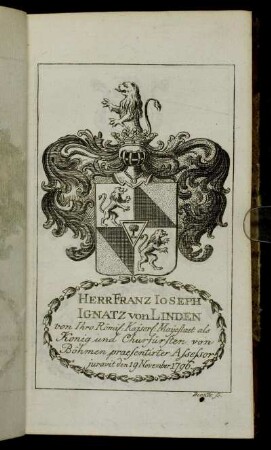 HERR FRANZ IOSEPH
IGNATZ von LINDEN
von Ihro Römis. Kaiserl. Majestaet als
König und Churfürsten von
Böhmen praesentirter Assessor
juravit den 19 November 1796.